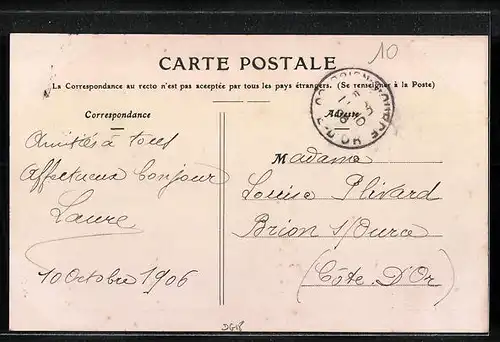 10
CARTE POSTALE
La Correspondance au recto n'est pas acceptée par tous les pays étrangers. (Se renseigner à la Poste)
Correspondance
Adresse
BRION-S-OURCE
CÔTE-D'OR
Amitiés à tous
Affectueux bonjour
Laure
10 Octobre 1906
Madame
Louise Plivard
Brion s/Ource
(Côte D'Or)